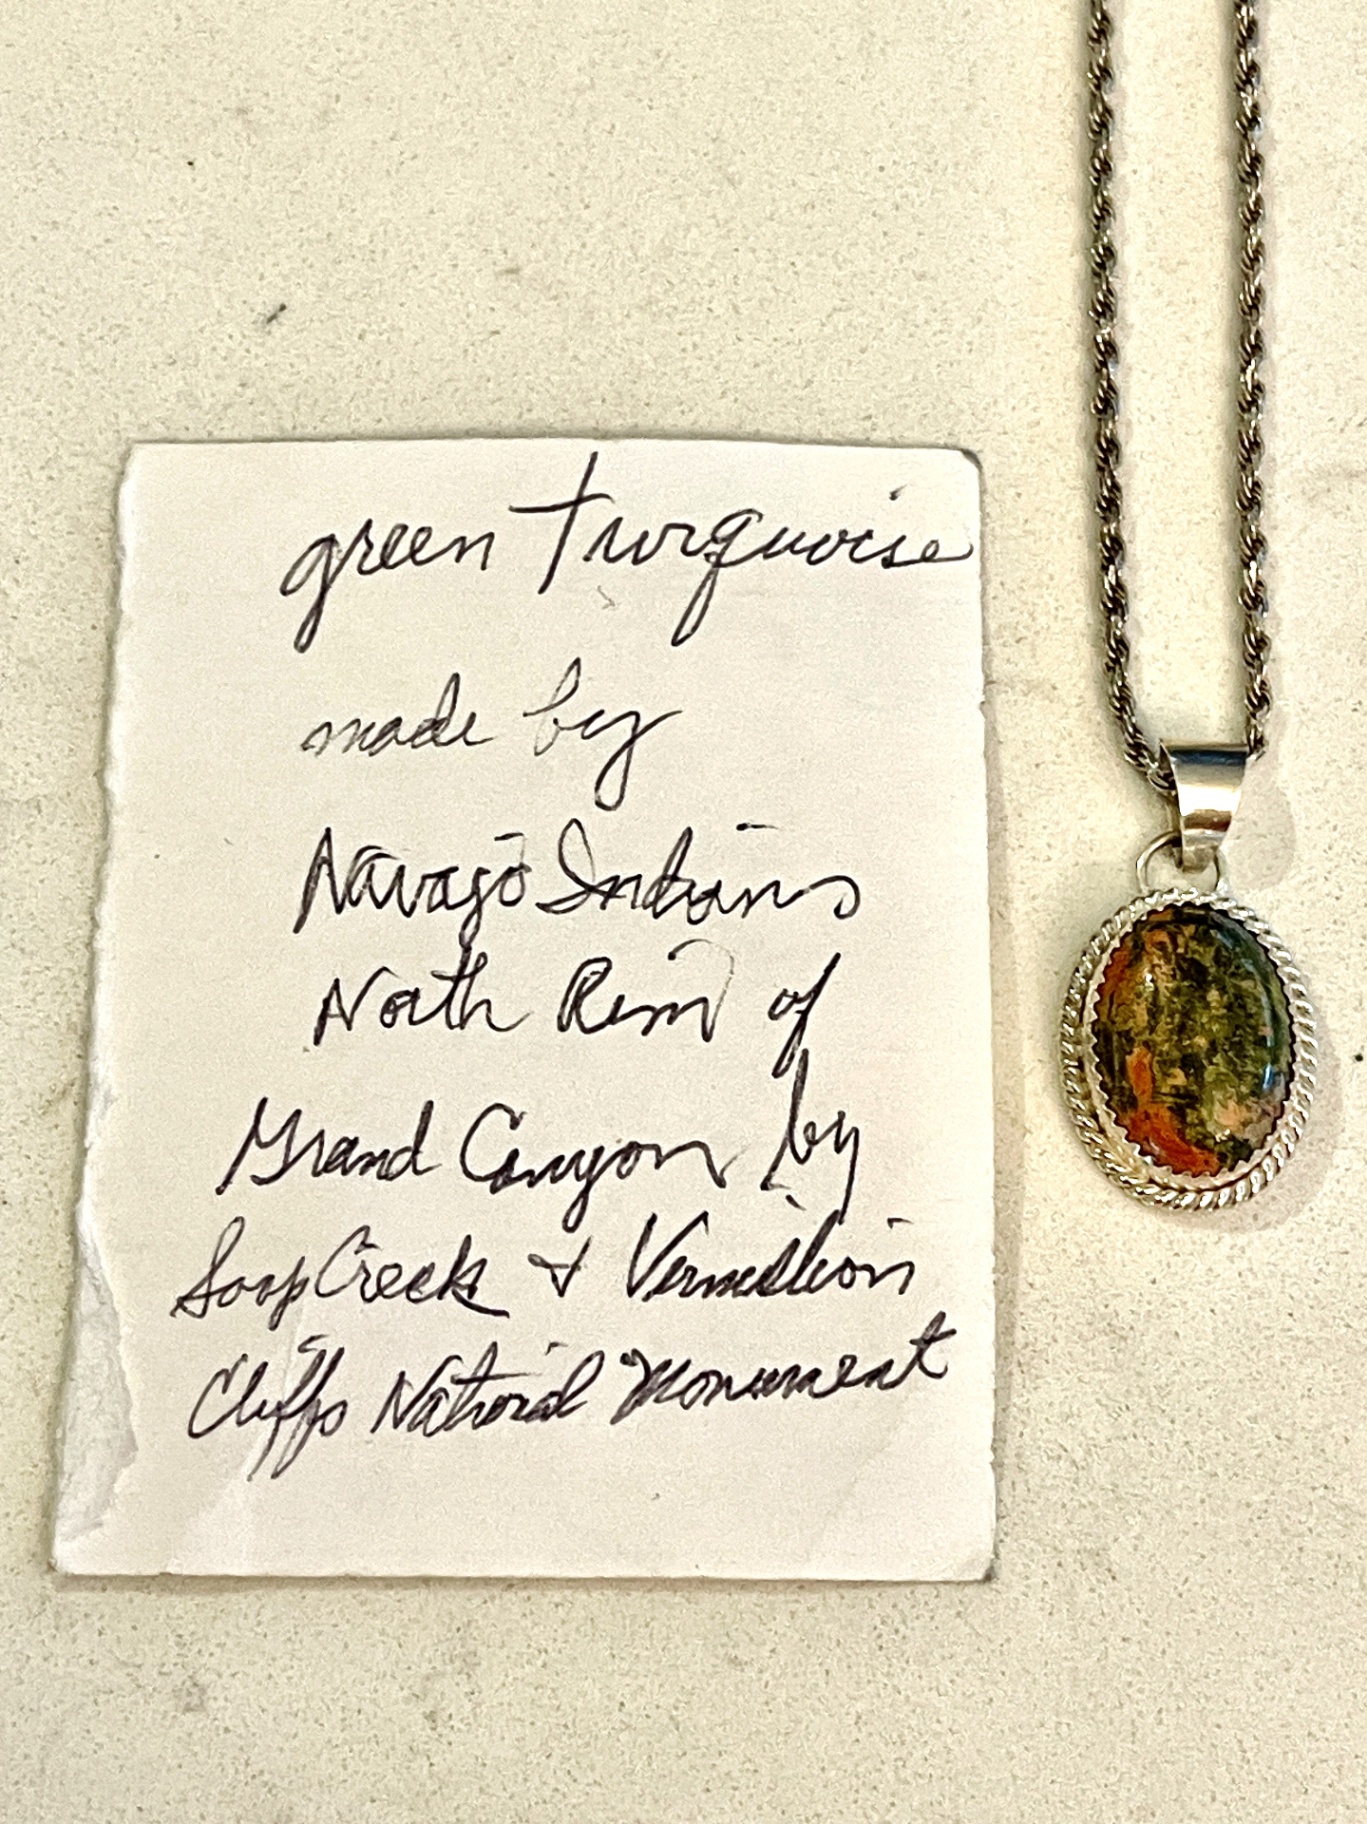 green turquoise
made by
Navajo Indians
North Rim of
Grand Canyon by
Soap Creek & Vermillion
Cliffs National Monument